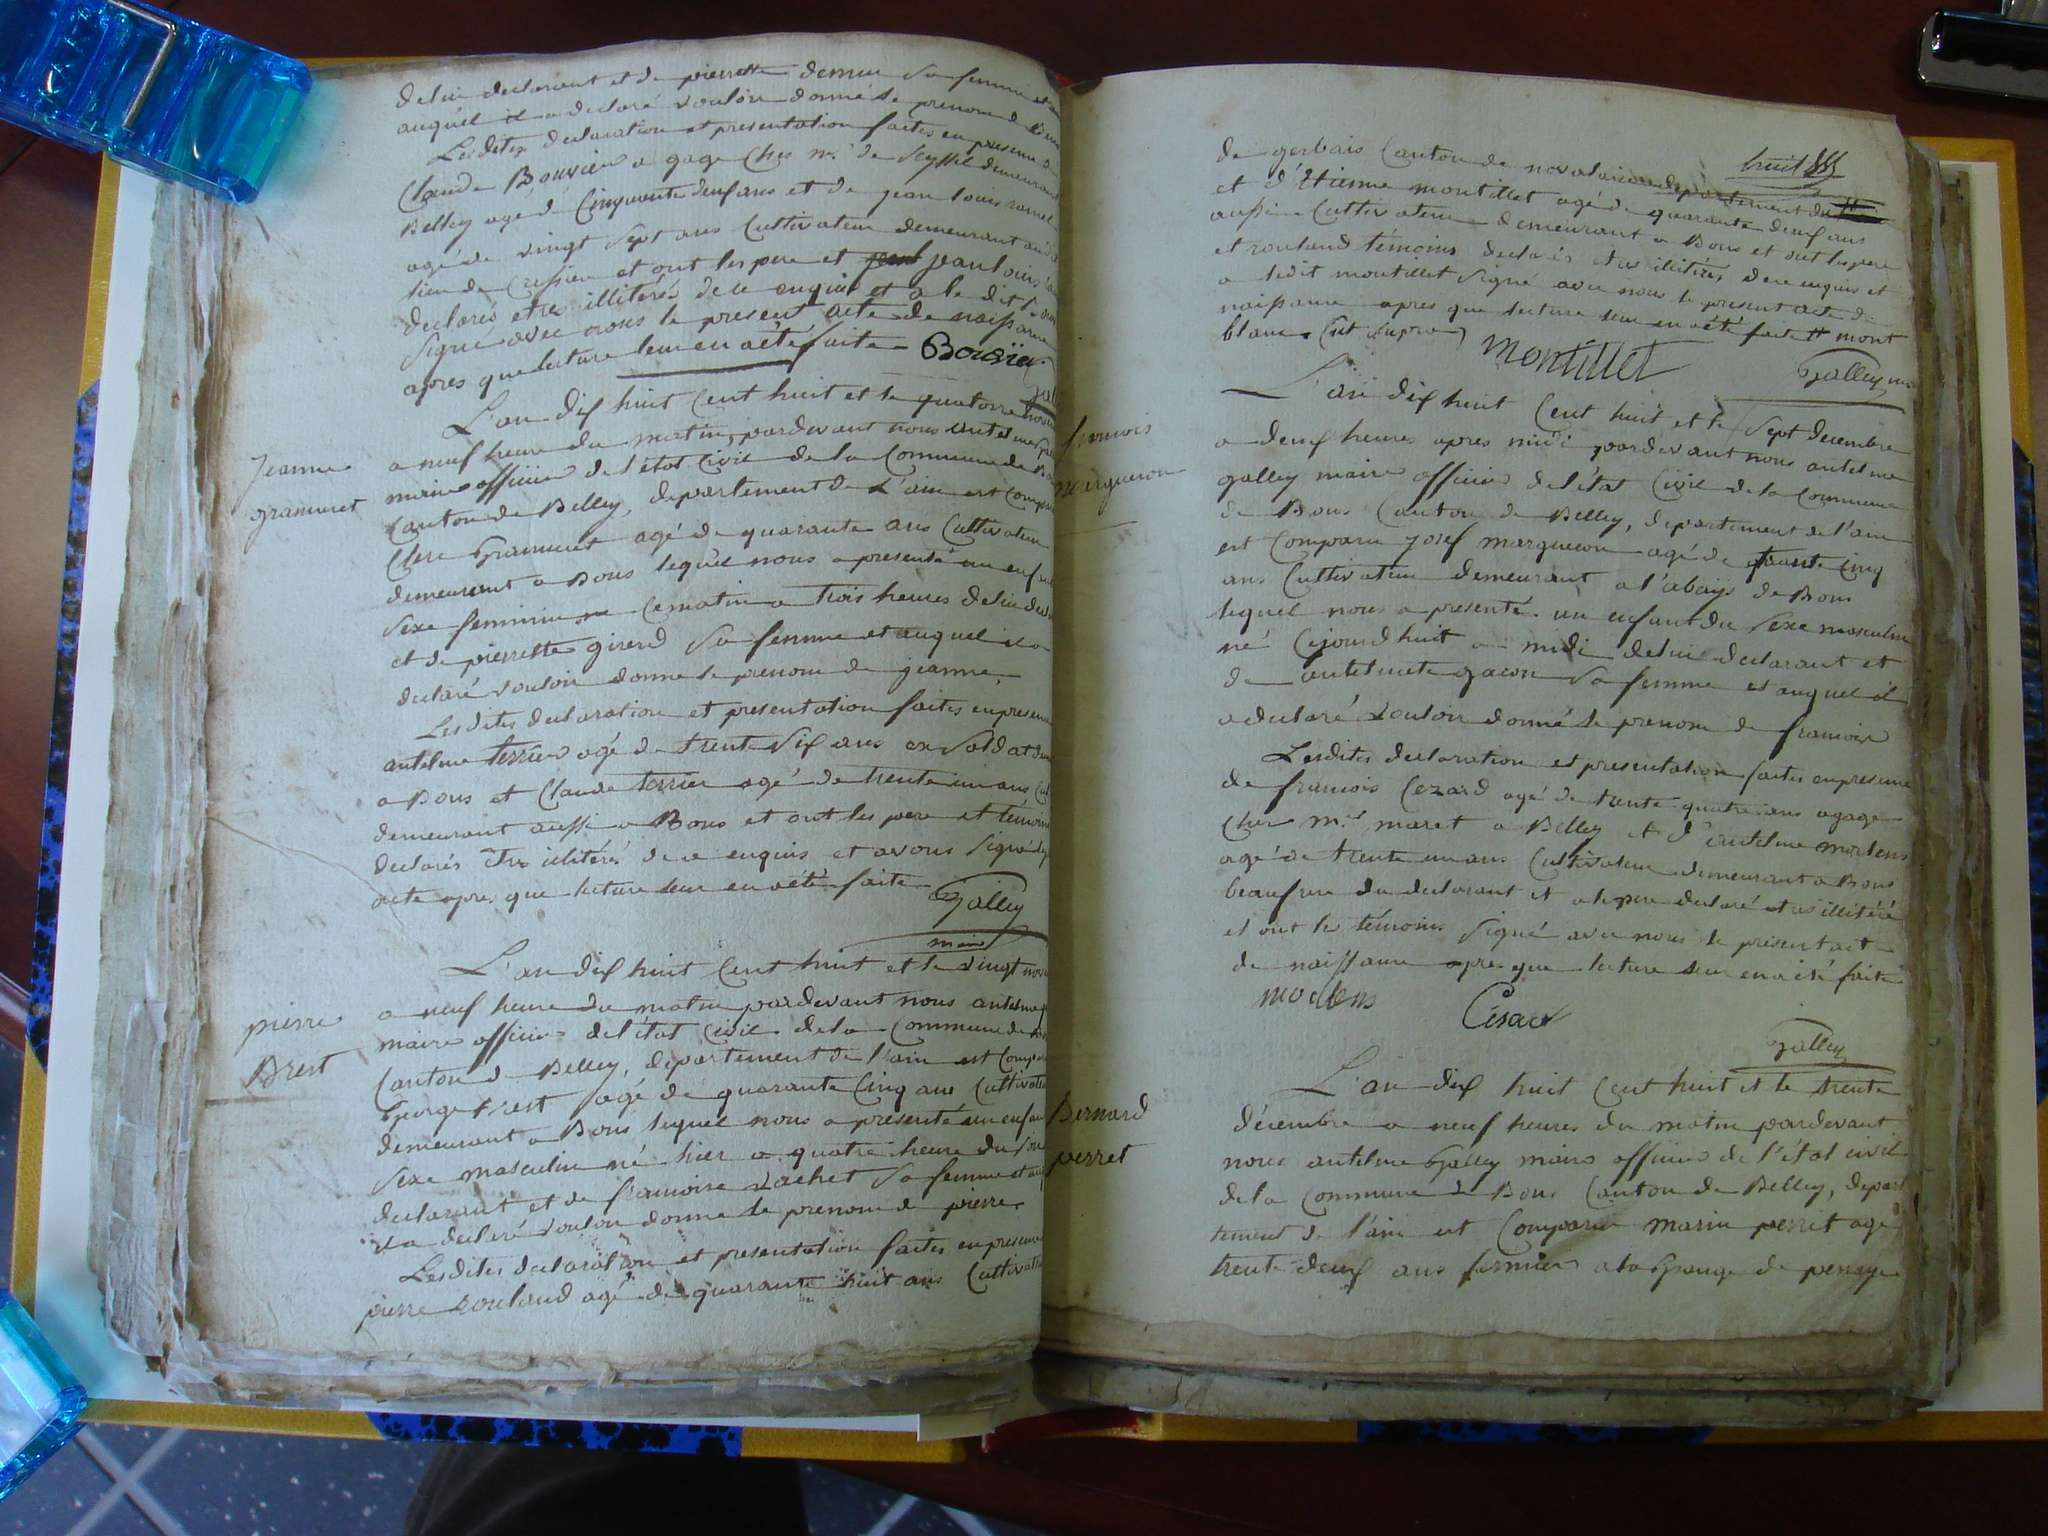 de lui declarant et de pierrette demeur sa femme et
auquel il a declaré vouloir donné le prenom de
Lesdites declaration et presentation faites en presence de
Claude Bouvier a gage Chez mr. de Seyssel demeurant
Belley agé de Cinquante deux ans et de jean louis ramel
agé de vingt sept ans Cultivateur demeurant audit
lieu de Cressieu et ont les pere et jean louis
declarés etre illiterés de ce enquis et a le dit
Signé avec nous le present acte de naissance
apres que lecture leur en a été faite Bouvier
L'an dix huit Cent huit et le quatorze
Jeanne
grammet
a neuf heure du matin, pardevant nous antelme
maire officier de l'état Civil de la Commune de
Canton de Belley, departement de L'ain est
Clere Grammet agé de quarante ans Cultivateur
demeurant a Bons lequel nous a presenté un enfant
Sexe feminin ne Cematin a trois heures de lui
et de pierrette girerd Sa femme et auquel il a
declaré vouloir donné le prenom de jeanne,
Lesdites declaration et presentation faites en presence
antelme terrier agé de trente Six ans ex Soldat
a Bons et Claude terrier agé de trente un ans
demeurant aussi a Bons et ont les pere et témoins
declarés etre illitérés de ce enquis et avons Signé
acte apres que lecture leur en a été faite
Galley
maire
L'an dix huit Cent huit et le vingt
pierre
Brest
a neuf heure du matin pardevant nous antelme
maire officier de l'état Civil de la Commune de
Canton de Belley, departement de l'ain est
George Brest agé de quarante Cinq ans Cultivateur
demeurant a Bons lequel nous a presenté un enfant
Sexe masculin né hier a quatre heure du
declarant et de francoise vachet Sa femme et
il a declaré vouloir donné le prenom de pierre
Lesdites declaration et presentation faites en presence
pierre rouland agé de quarante huit ans Cultivateur
huit
de gerbais Canton de novalaise departement du
et d'Etienne montillet agé de quarante deux ans
aussi Cultivateur demeurant a Bons et ont les pere
et rouland témoins declarés etre illitérés, de ce enquis et
a ledit montillet Signé avec nous le present acte de
naissance apres que lecture leur en a été faite mont
blanc Cut Supra montillet Galley
L'an dix huit Cent huit et le Sept decembre
francois
marguerou
a deux heures apres midi pardevant nous antelme
galley maire officier de l'état Civil de la Commune
de Bons Canton de Belley, departement de l'ain
est Comparu josef marguerou agé de trente Cinq
ans Cultivateur demeurant a l'abaye de Bons
lequel nous a presenté un enfant du Sexe masculin
né Cejourdhuit a midi de lui declarant et
de antelmete gacon Sa femme et auquel il
a declaré vouloir donné le prenom de francois
Lesdites declaration et presentation faites en presence
de francois Cezard agé de trente quatre ans a gage
Chez mr maret a Belley et d'antelme
agé de trente un ans Cultivateur demeurant a Bons
beaufrere du declarant et a le pere declaré etre illitéré
et ont les témoins Signé avec nous le present acte
de naissance apres que lecture leur en a été faite
Cesard
Galley
L'an dix huit Cent huit et le trente
Bernard
perret
décembre a neuf heures du matin pardevant
nous antelme Galley maire officier de l'état civil
de la Commune de Bons Canton de Belley, depart
tement de l'ain est Comparu marin perret agé
trente deux ans fermier a la Grange de